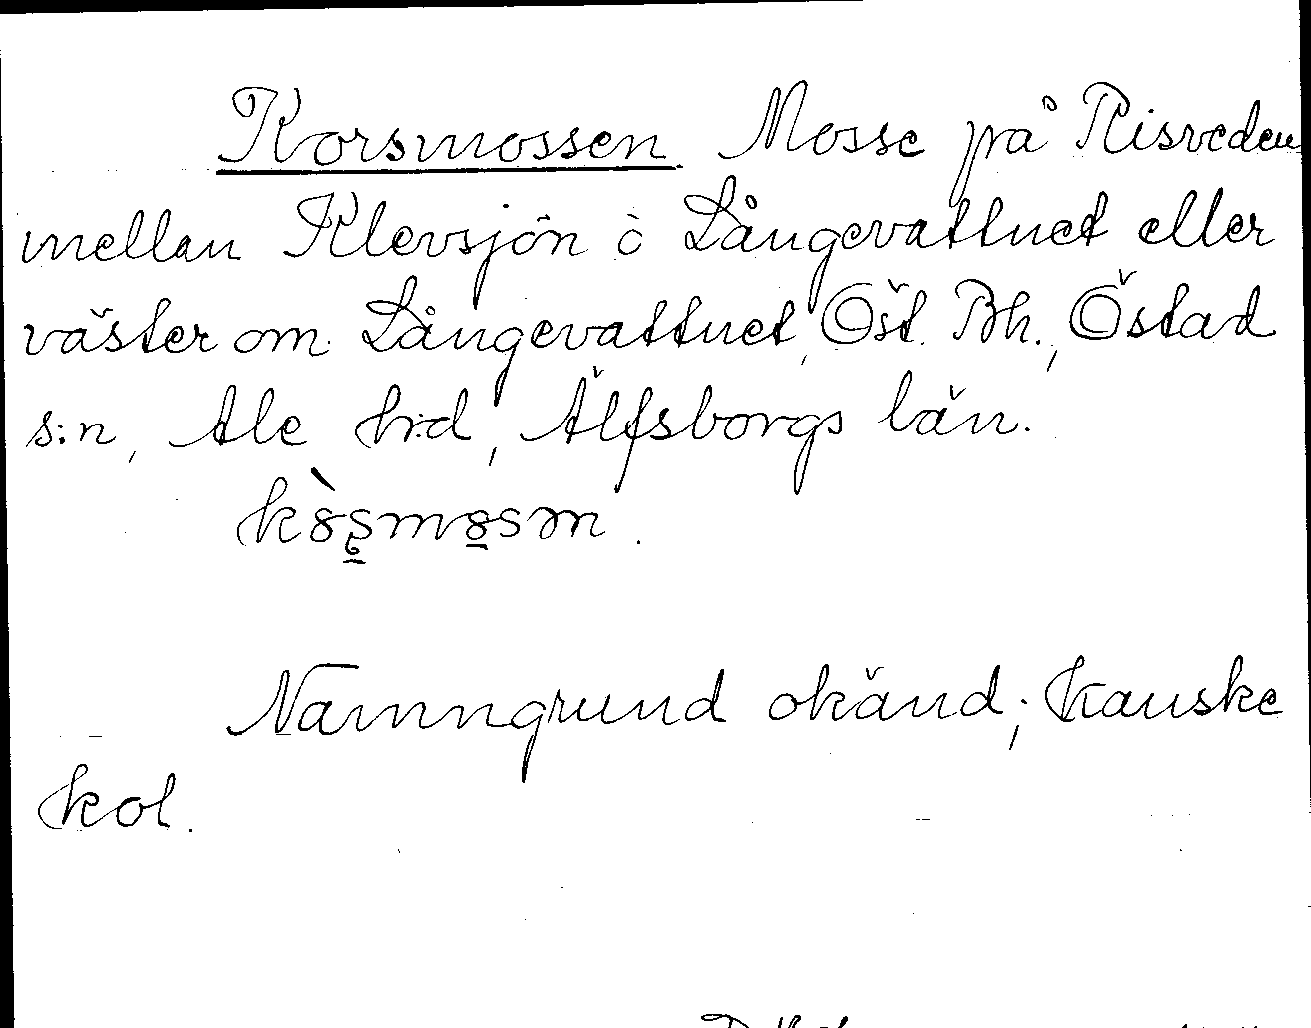 Korsmossen. Mosse på Risveden
mellan Klevsjön o Långevattnet eller
väster om Långevattnet, Öst. Bh., Östad
s:n, Ale h:d, Älfsborgs län.
Namngrund okänd; kanske
kol.